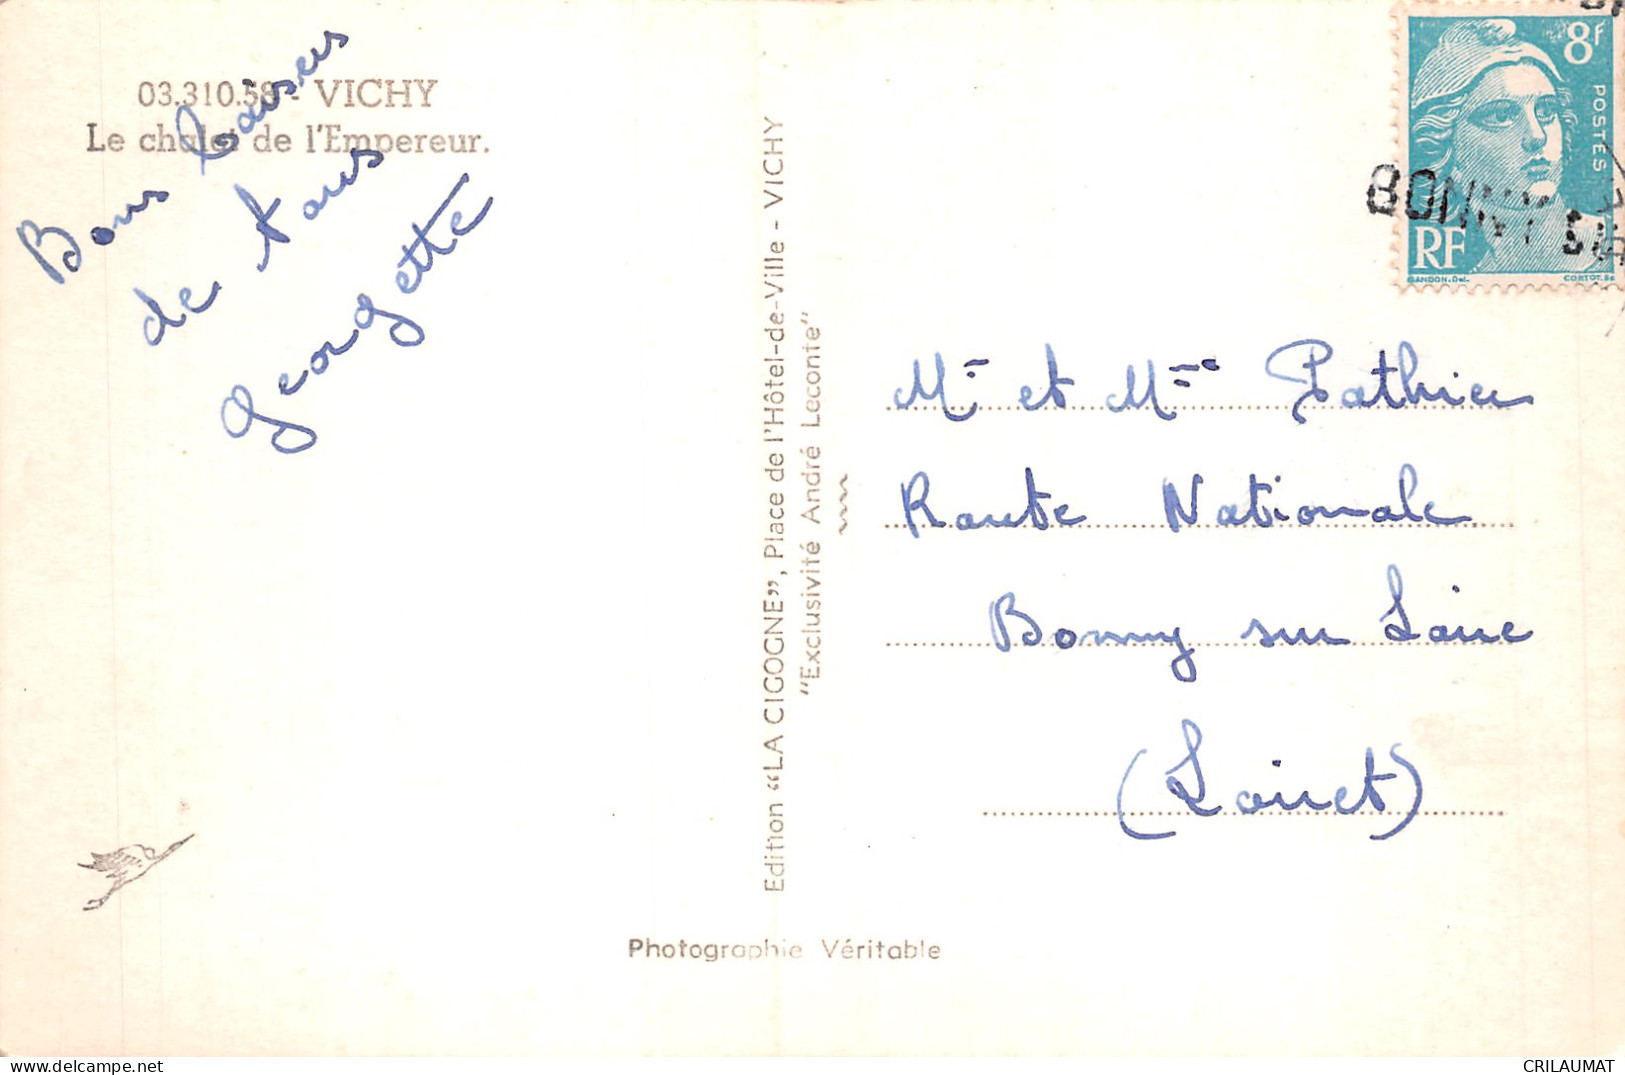 03.310.58 - VICHY
Le chalet de l'Empereur.
Bons baisers
de tous
Georgette
Edition "LA CIGOGNE", Place de l'Hôtel-de-Ville - VICHY
"Exclusivité André Leconte"
8f
POSTES
RF
GANDON.Del.
CORTOT.Sc
BONNY
Mr et Mme Pathier
Route Nationale
Bonny sur Loire
(Loiret)
Photographie Véritable
CRILAUMAT